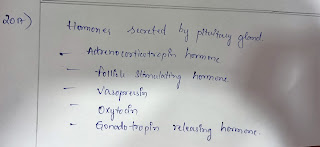 20a)
Hormones secreted by pituitary gland.
- Adrenocorticotropin hormone
- follicle stimulating hormone
- Vasopressin
- Oxytocin
- Gonado tropin releasing hormone.